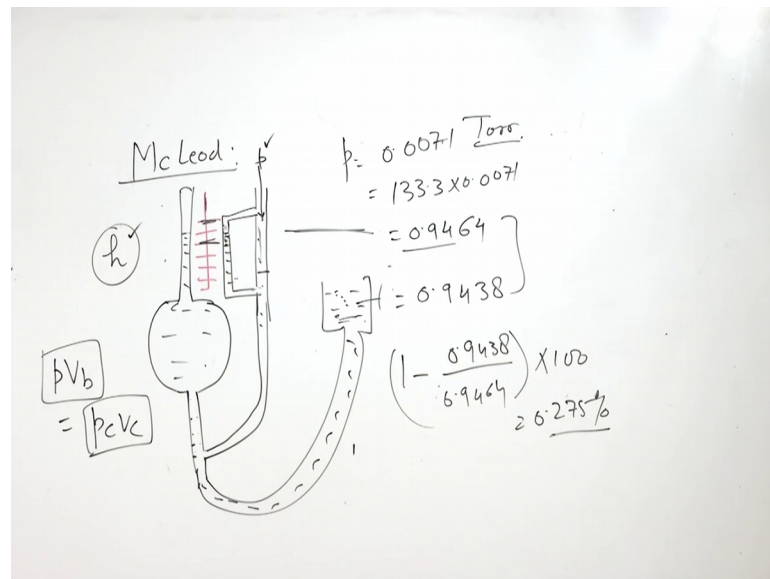 McLeod:
p
h
pVb
= pcVc
p= 0.0071 Torr.
= 133.3×0.0071
= 0.9464
= 0.9438
(1 - 0.9438/0.9464) ×100
= 0.275%